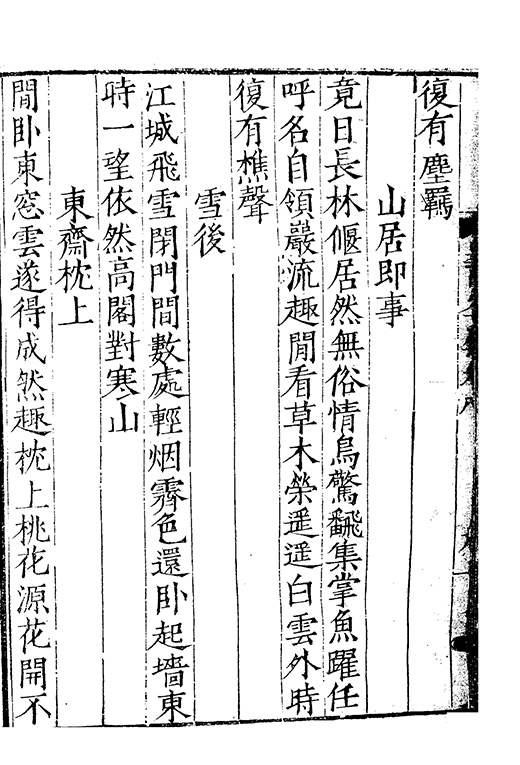 復有塵羈
山居即事
竟日長林偃居然無俗情鳥驚飜集掌魚躍任
呼名自領巖流趣閒看草木榮遥遥白雲外時
復有樵聲
雪後
江城飛雪閉門間數處輕烟霽色還卧起墻東
時一望依然高閣對寒山
東齋枕上
閒卧東窓雲遂得成然趣枕上桃花源花開不